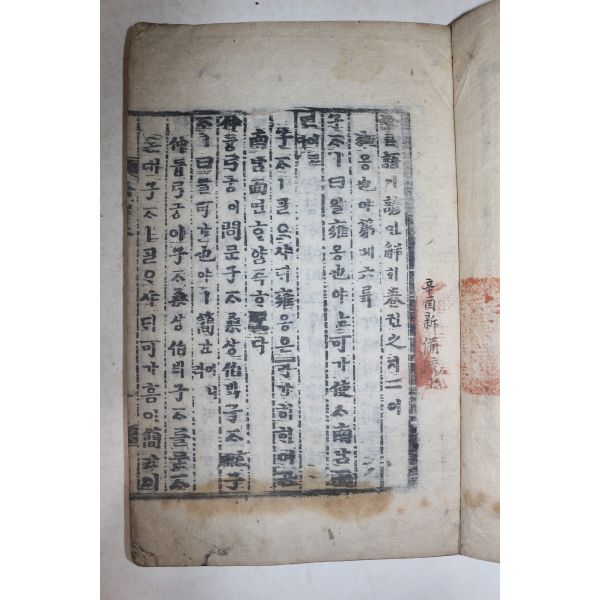 辛酉新備
論語어諺언解ᄒᆡ卷권之지二이
雍옹也야第뎨六륙
子ᄌᆞㅣ曰왈雍옹也야ᄂᆞᆫ可가使ᄉᆞ南남面
子ᄌᆞㅣᄀᆞᆯᄋᆞ샤ᄃᆡ雍옹은可가히ᄒᆞ여곰
南남面면ᄒᆞ얌즉ᄒᆞ다
仲듕弓궁이問문子ᄌᆞ桑상伯ᄇᆡᆨ子ᄌᆞ子
ᄌᆞㅣ曰왈可가也야ㅣ簡간
仲듕弓궁이子ᄌᆞ桑상伯ᄇᆡᆨ子ᄌᆞ를묻ᄌᆞ
온대子ᄌᆞㅣᄀᆞᆯᄋᆞ샤ᄃᆡ可가홈이簡간이